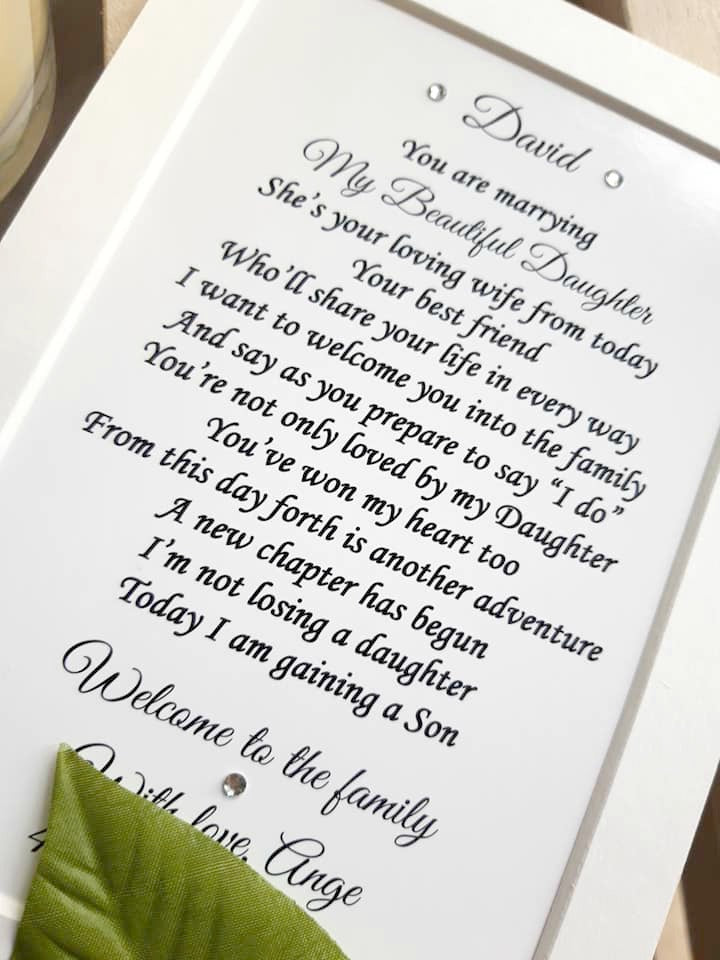 David
You are marrying
My Beautiful Daughter
She's your loving wife from today
Your best friend
Who'll share your life in every way
I want to welcome you into the family
And say as you prepare to say "I do"
You're not only loved by my Daughter
You've won my heart too
From this day forth is another adventure
A new chapter has begun
I'm not losing a daughter
Today I am gaining a Son
Welcome to the family
With love, Ange